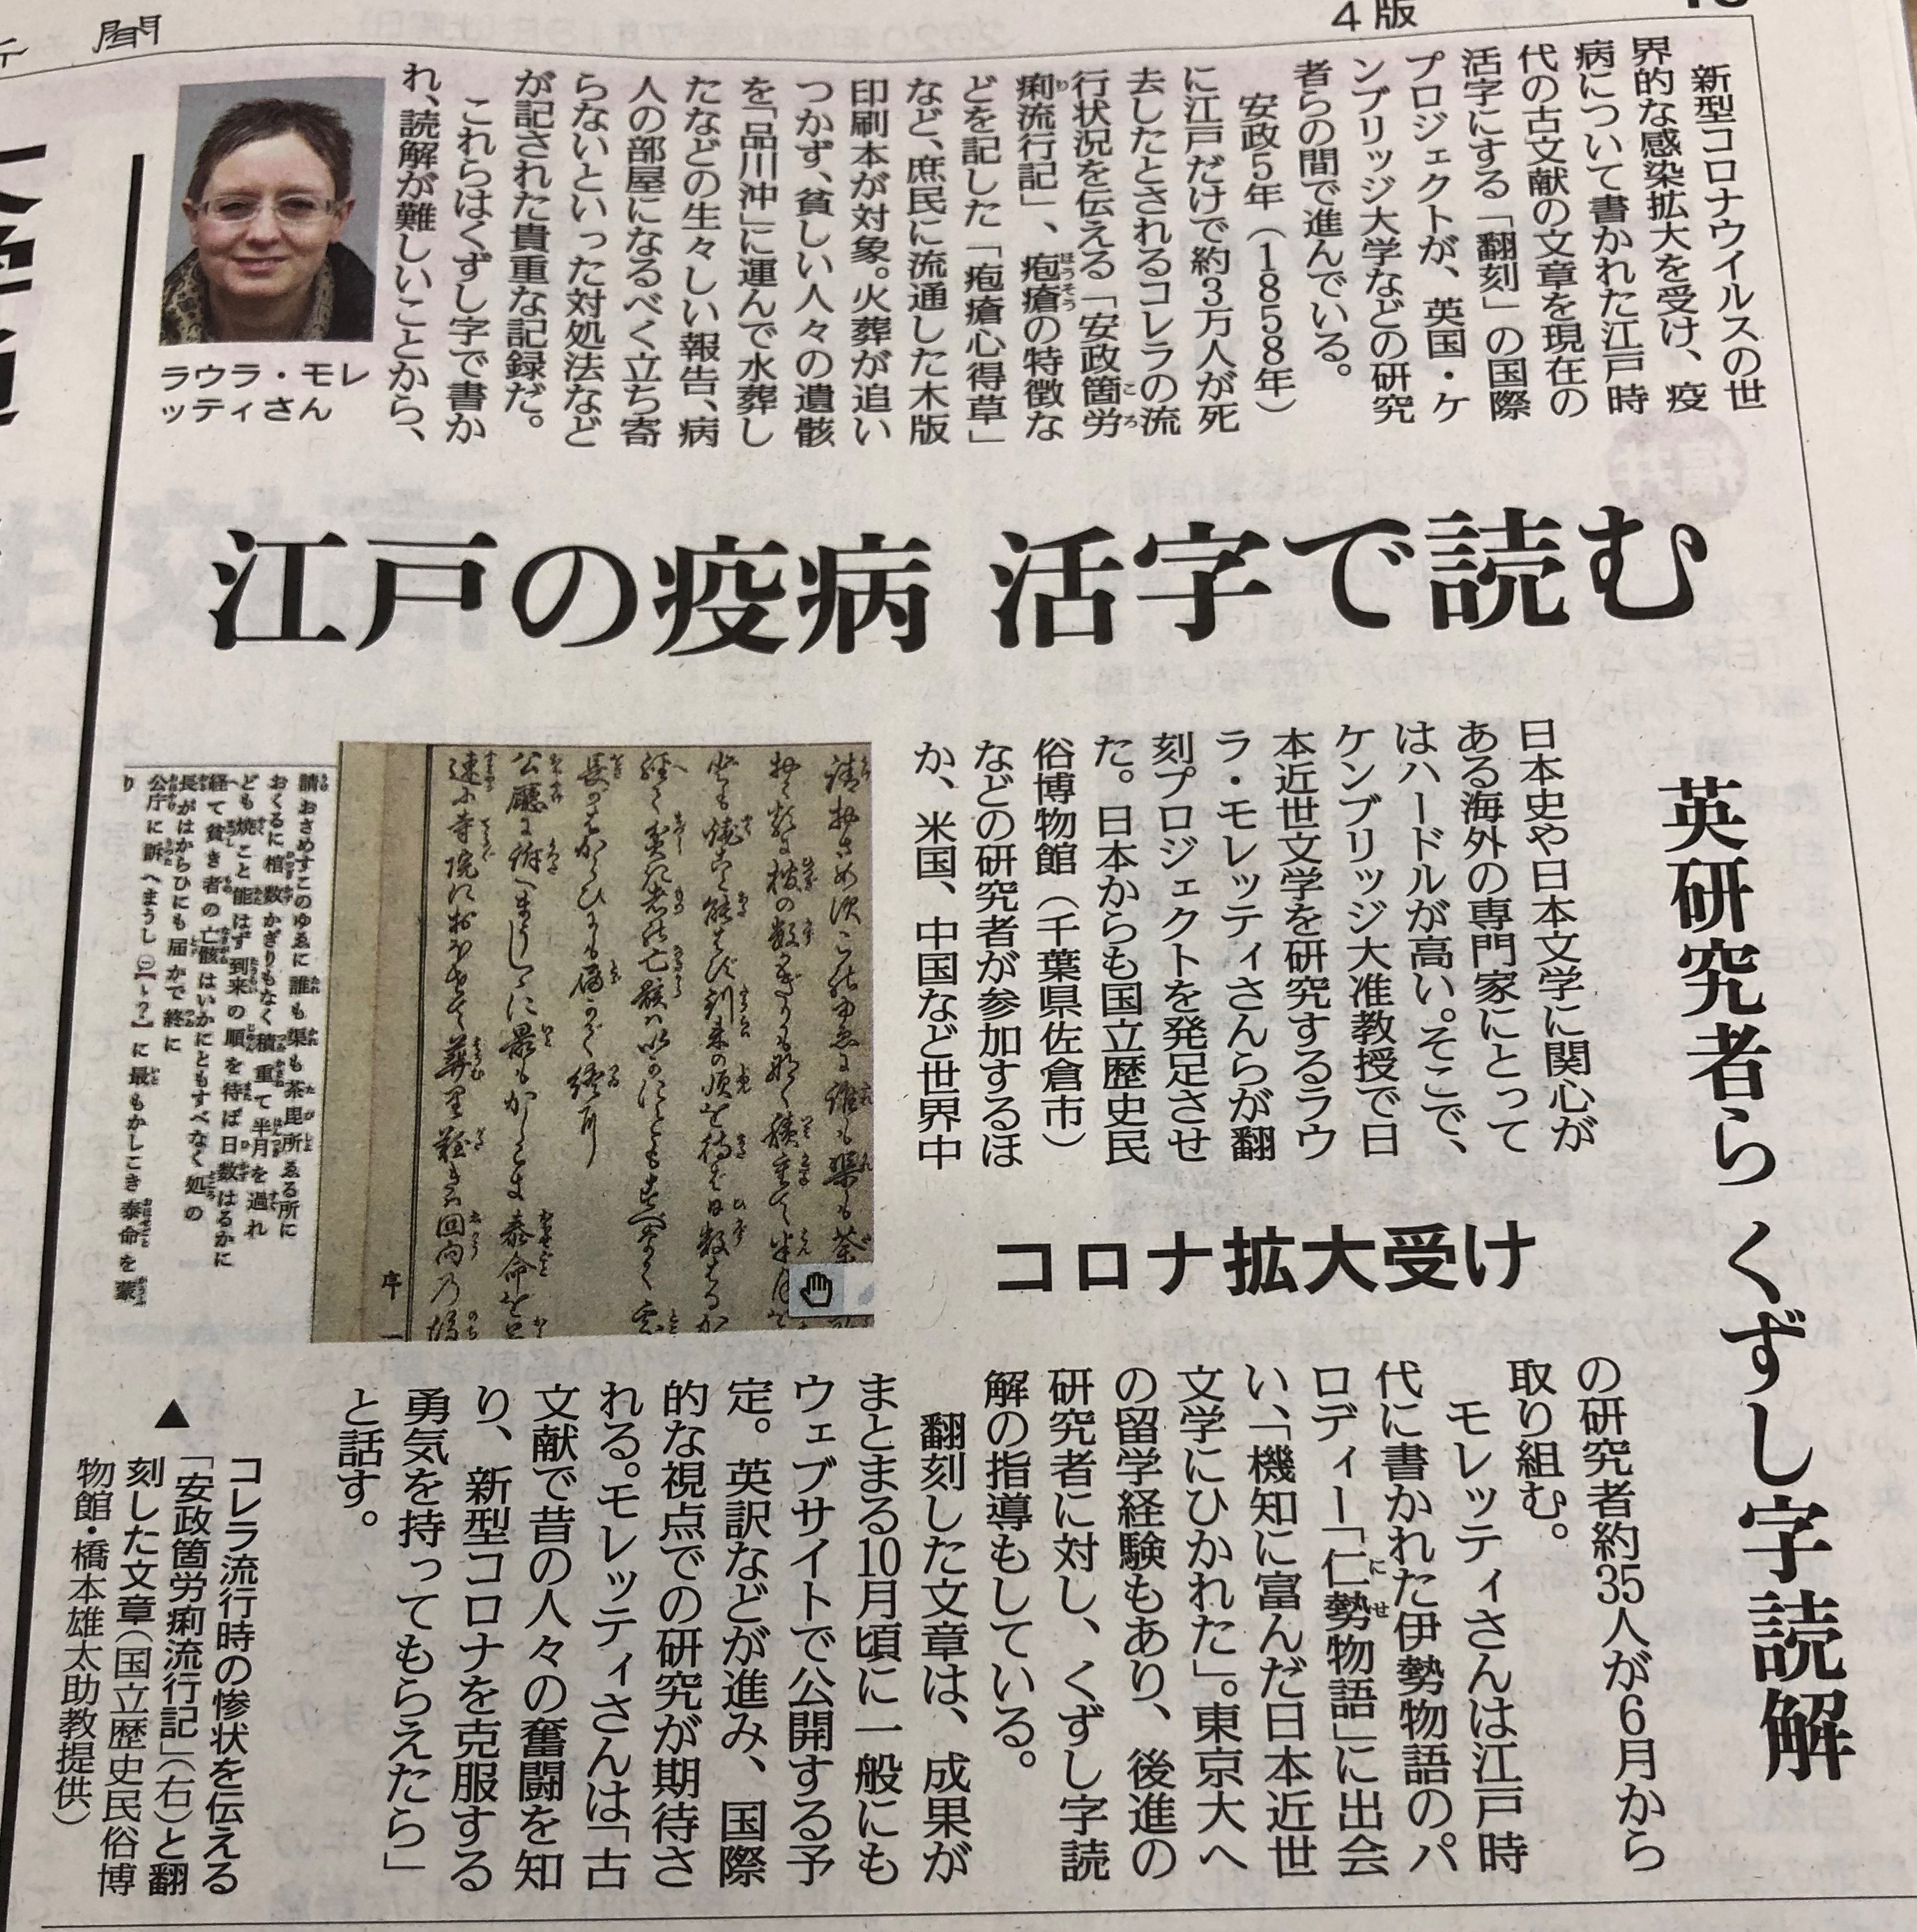 聞
4版
江戸の疫病 活字で読む
英研究者ら くずし字読解
コロナ拡大受け
新型コロナウイルスの世
界的な感染拡大を受け、疫
病について書かれた江戸時
代の古文献の文章を現在の
活字にする「翻刻」の国際
プロジェクトが、英国・ケ
ンブリッジ大学などの研究
者らの間で進んでいる。
安政5年(1858年)
に江戸だけで約3万人が死
去したとされるコレラの流
行状況を伝える「安政箇労
痢流行記」、疱瘡の特徴な
どを記した「疱瘡心得草」
など、庶民に流通した木版
印刷本が対象。火葬が追い
つかず、貧しい人々の遺骸
を「品川沖」に運んで水葬し
たなどの生々しい報告、病
人の部屋になるべく立ち寄
らないといった対処法など
が記された貴重な記録だ。
これらはくずし字で書か
れ、読解が難しいことから、
ラウラ・モレ
ッティさん
日本史や日本文学に関心が
ある海外の専門家にとって
はハードルが高い。そこで、
ケンブリッジ大准教授で日
本近世文学を研究するラウ
ラ・モレッティさんらが翻
刻プロジェクトを発足させ
た。日本からも国立歴史民
俗博物館(千葉県佐倉市)
などの研究者が参加するほ
か、米国、中国など世界中
の研究者約35人が6月から
取り組む。
モレッティさんは江戸時
代に書かれた伊勢物語のパ
ロディー「仁勢物語」に出会
い、「機知に富んだ日本近世
文学にひかれた」。東京大へ
の留学経験もあり、後進の
研究者に対し、くずし字読
解の指導もしている。
翻刻した文章は、成果が
まとまる10月頃に一般にも
ウェブサイトで公開する予
定。英訳などが進み、国際
的な視点での研究が期待さ
れる。モレッティさんは「古
文献で昔の人々の奮闘を知
り、新型コロナを克服する
勇気を持ってもらえたら」
と話す。
請おさめすこのゆゑに誰も渠も荼毘所ゑる所に
おくるに棺数かぎりもなく積重て半月を過れ
ども焼こと能はず到来の順を待ば日数はるかに
経て貧き者の亡骸はいかにともすべなく処の
長がはからひにも届かで終に
公庁に訴へまうし【ゝ?】に最もかしこき泰命を蒙
り
▲
コレラ流行時の惨状を伝える
「安政箇労痢流行記」(右)と翻
刻した文章(国立歴史民俗博
物館・橋本雄太助教提供)